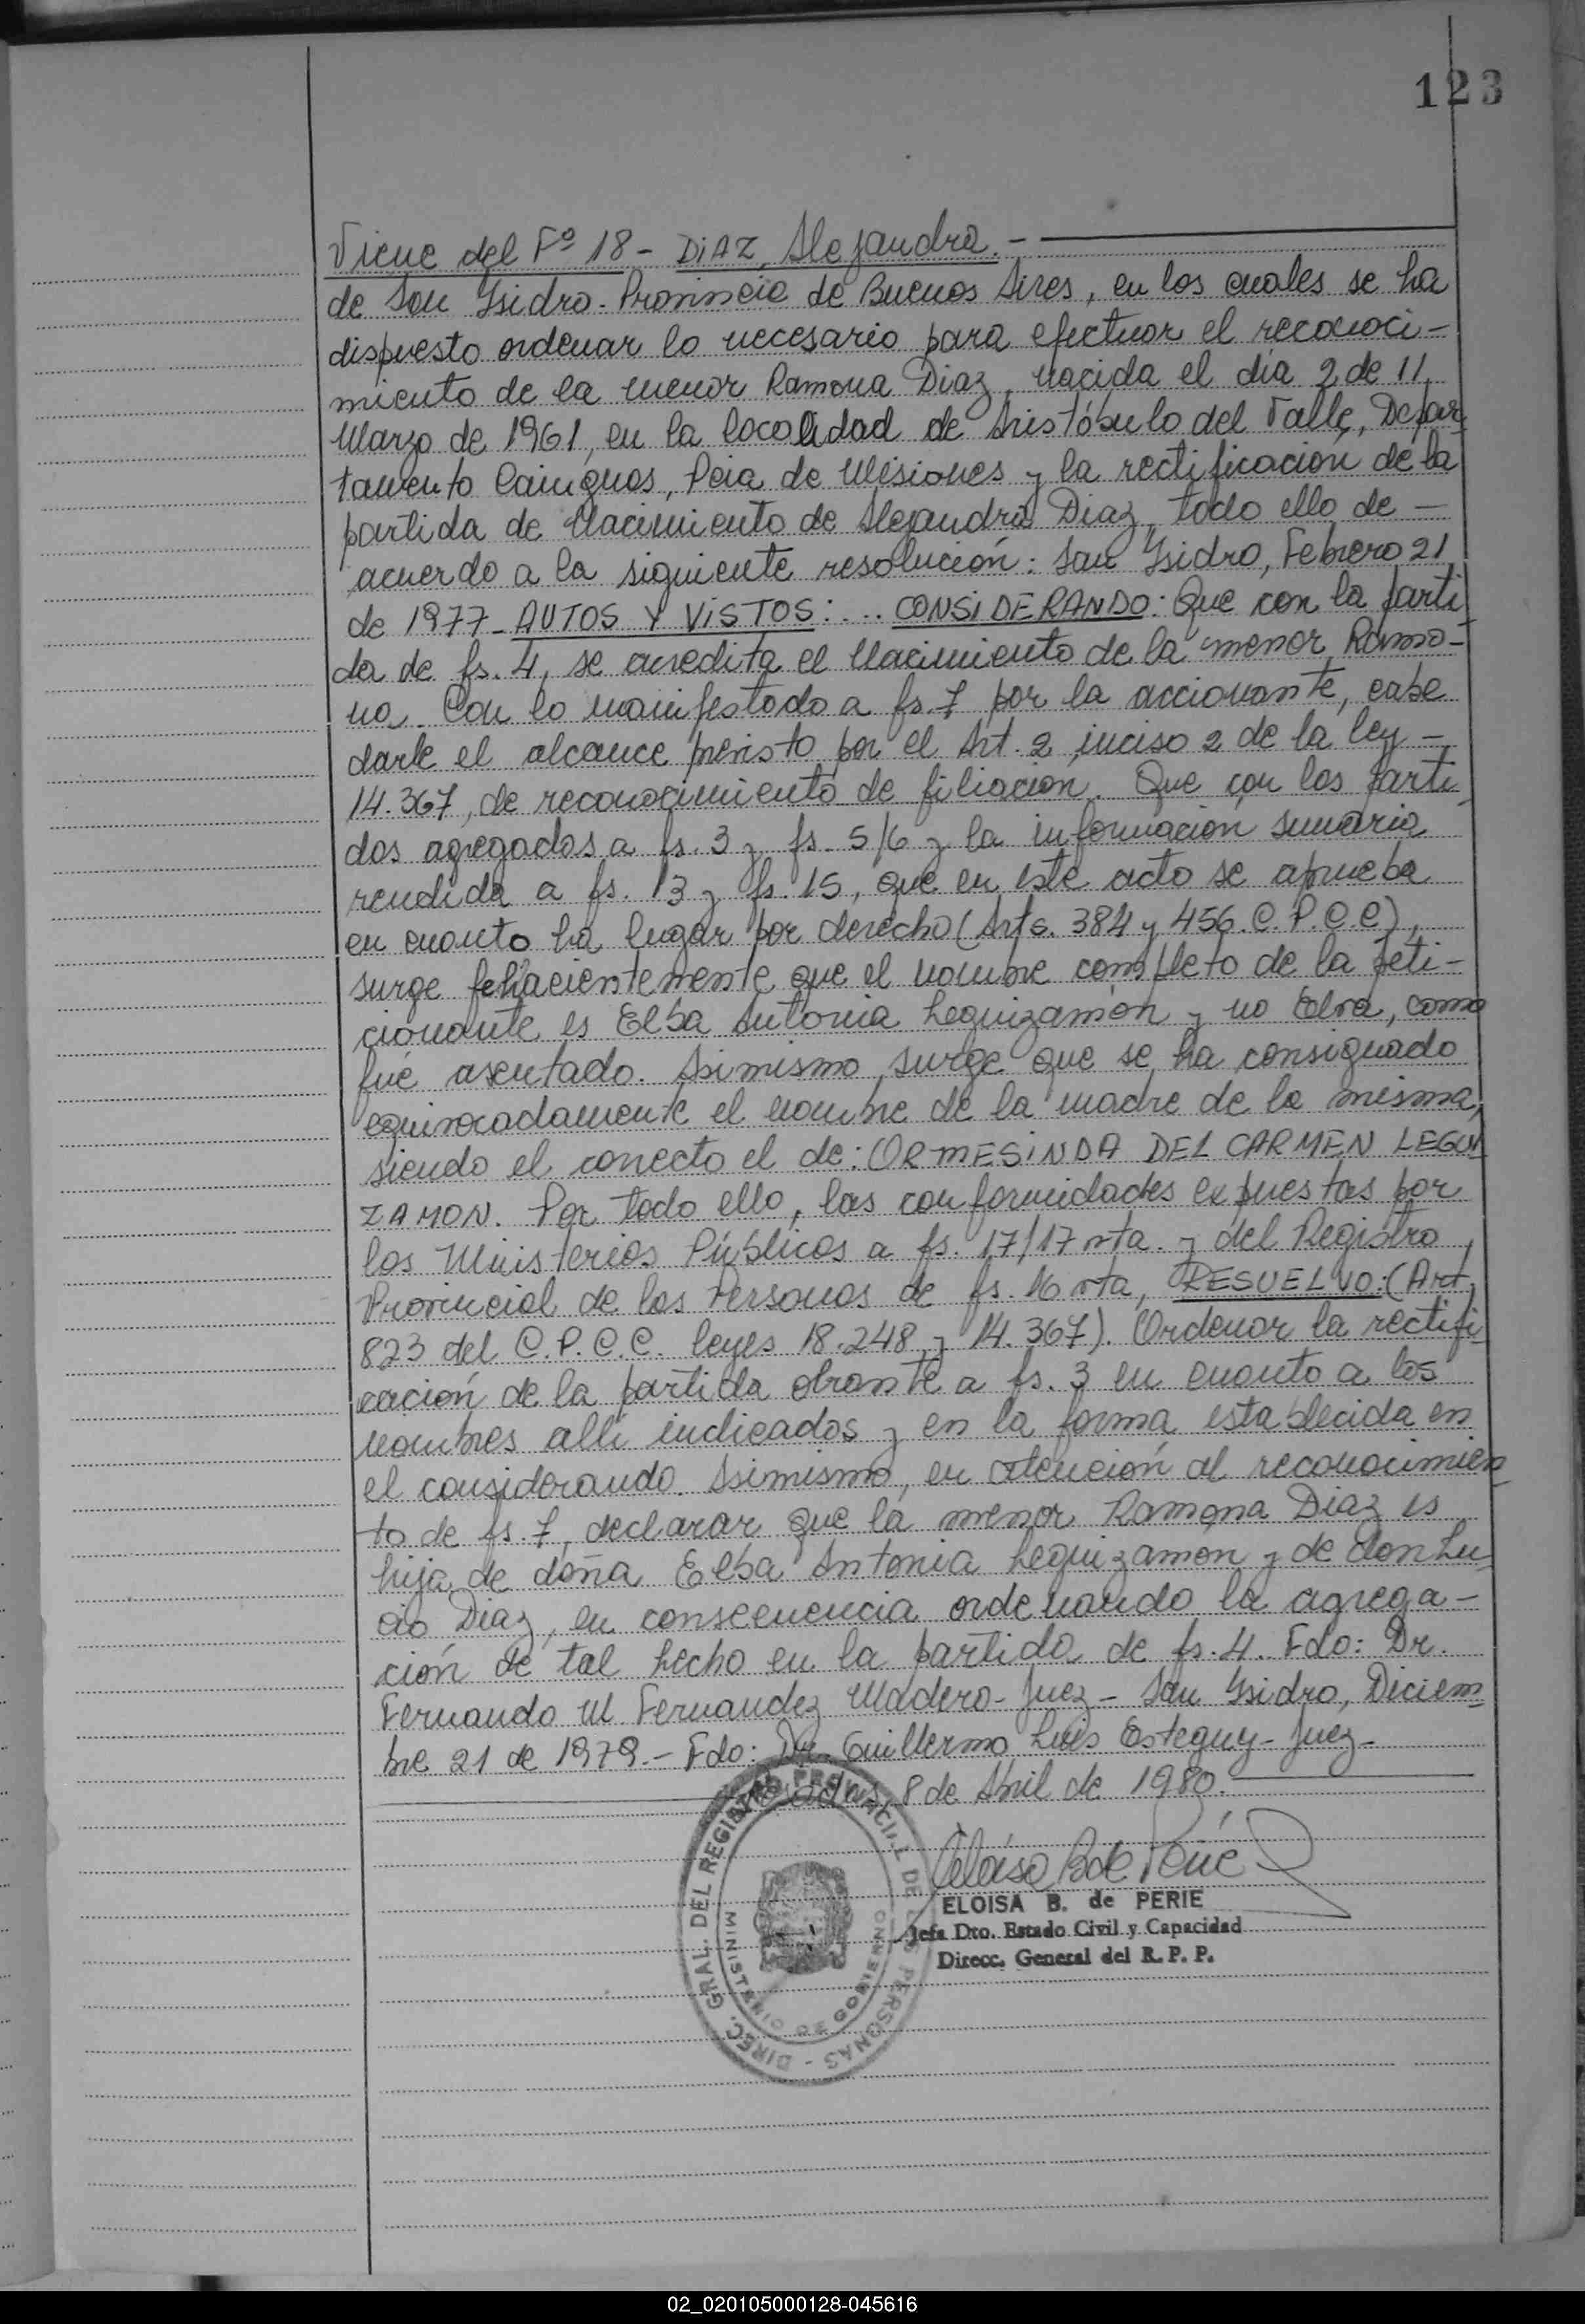 123
Viene del Fº 18 - DIAZ, Alejandra. -
de San Isidro. Provincia de Buenos Aires, en los cuales se ha
dispuesto ordenar lo necesario para efectuar el reconoci-
miento de la menor Ramona Diaz, nacida el día 2 de 11
Marzo de 1961, en la localidad de Aristóbulo del Valle, Depar-
tamento Cainguas, Pcia de Misiones y la rectificación de la
partida de Nacimiento de Alejandra Diaz, todo ello de -
acuerdo a la siguiente resolución: San Isidro, Febrero 21
de 1977 - AUTOS Y VISTOS: ... CONSIDERANDO: Que con la parti
da de fs. 4, se acredita el Nacimiento de la menor Ramo-
na. Con lo manifestado a fs. 7 por la accionante, cabe
darle el alcance previsto por el Art. 2 inciso 2 de la ley -
14.367, de reconocimiento de filiacion. Que con las parti
das agregadas a fs. 3 y fs. 5/6 y la información sumaria
rendida a fs. 13 y fs. 15, que en este acto se aprueba
en cuanto ha lugar por derecho (Arts. 384 y 456. C.P.C.C),
surge fehacientemente que el nombre completo de la peti-
cionante es Elba Antonia Leguizamón y no Elva, como
fué asentado. Asimismo, surge que se ha consignado
equivocadamente el nombre de la madre de la misma,
siendo el correcto el de: ORMESINDA DEL CARMEN LEGUI
ZAMON. Por todo ello, las conformidades expuestas por
los Ministerios Públicos a fs. 17/17 vta. y del Registro
Provincial de las Personas de fs. 16 vta, RESUELVO: (Art.
823 del C.P.C.C. leyes 18.248 y 14.367). Ordenar la rectifi
cación de la partida obrante a fs. 3 en cuanto a los
nombres alli indicados y en la forma establecida en
el considerando. Asimismo, en atención al reconocimien
to de fs. 7, declarar que la menor Ramona Diaz es
hija de doña Elba Antonia Leguizamón y de don Lu
cio Diaz, en consecuencia ordenando la agrega-
ción de tal hecho en la partida de fs. 4. Fdo: Dr.
Fernando M. Fernandez Madero - Juez - San Isidro, Diciem
bre 21 de 1979. - Fdo: Dr. Guillermo Luis Esteguy - Juez -
Posadas, 8 de Abril de 1980.
Eloisa B de Perié
ELOISA B. de PERIE
Jefa Dto. Estado Civil y Capacidad
Direcc. General del R. P. P.
DIREC. GRAL. DEL REGISTRO PROVINCIAL DE LAS PERSONAS -
MINISTERIO DE GOBIERNO
02_020105000128-045616